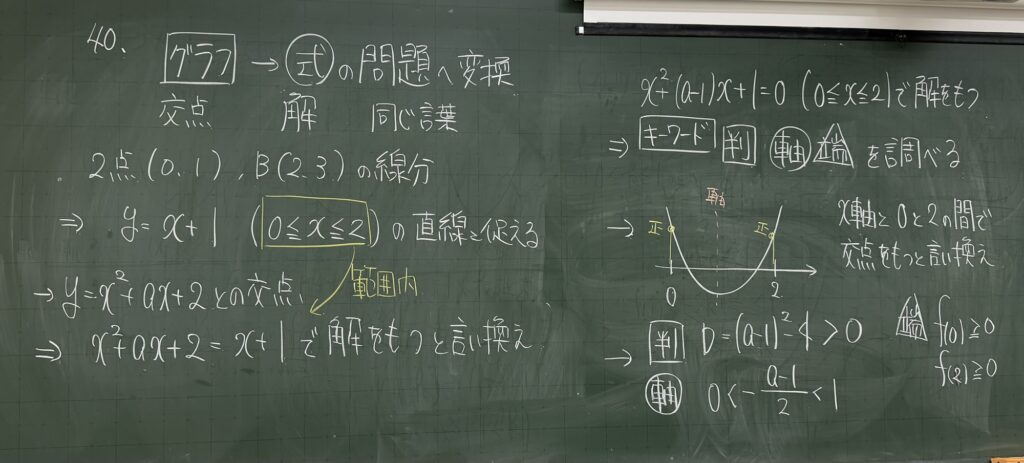 40.
グラフ → 式 の問題へ変換
交点 解 同じ言葉
2点 (0.1) , B(2.3) の線分
⇒ y=x+1 (0≦x≦2) の直線と促える
範囲内
→ y=x²+ax+2 との交点
⇒ x²+ax+2=x+1 で解をもつと言い換え
x²+(a-1)x+1=0 (0≦x≦2) で解をもつ
⇒ キーワード 判 軸 端 を調べる
軸
→ 正 正
0 2
x軸と0と2の間で
交点をもつと言い換え
→ 判 D=(a-1)²-4>0
軸 0<-\frac{a-1}{2}<1
端 f(0)≧0
f(2)≧0